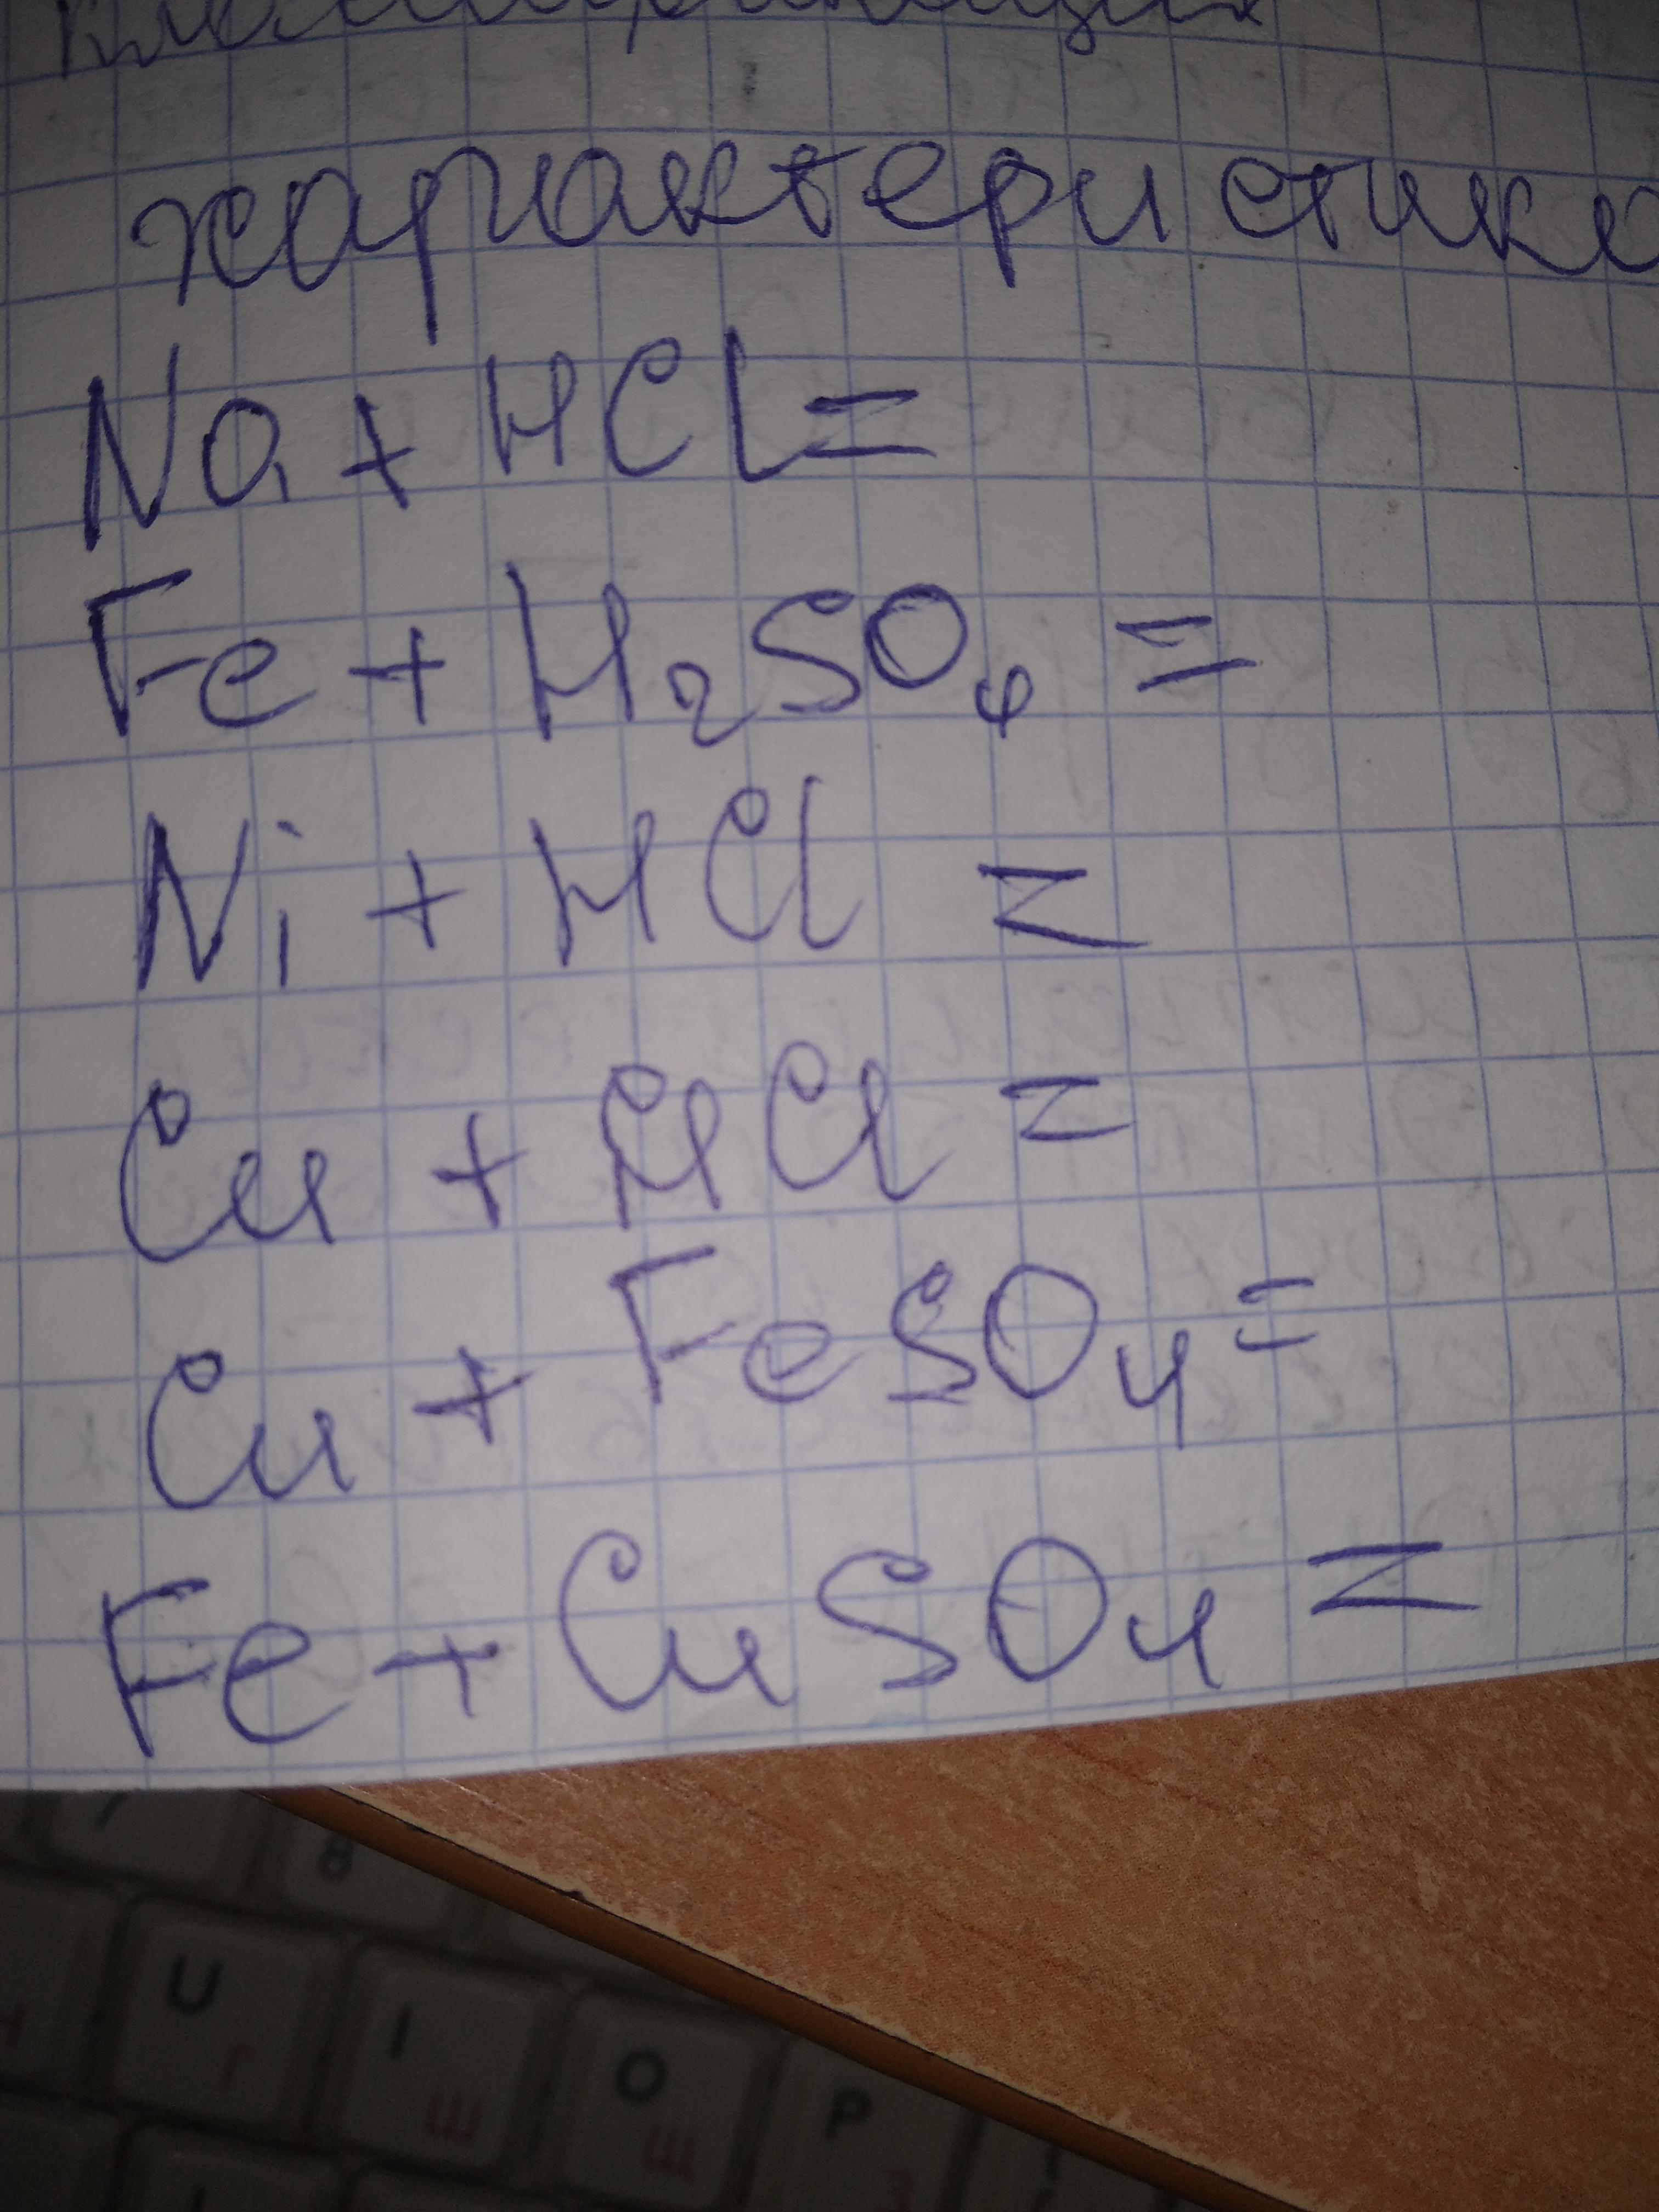 характеристика
Na + HCl =
Fe + H₂SO₄ =
Ni + HCl =
Cu + HCl =
Cu + FeSO₄ =
Fe + CuSO₄ =
8
U Г
I Ш
O Щ
P З